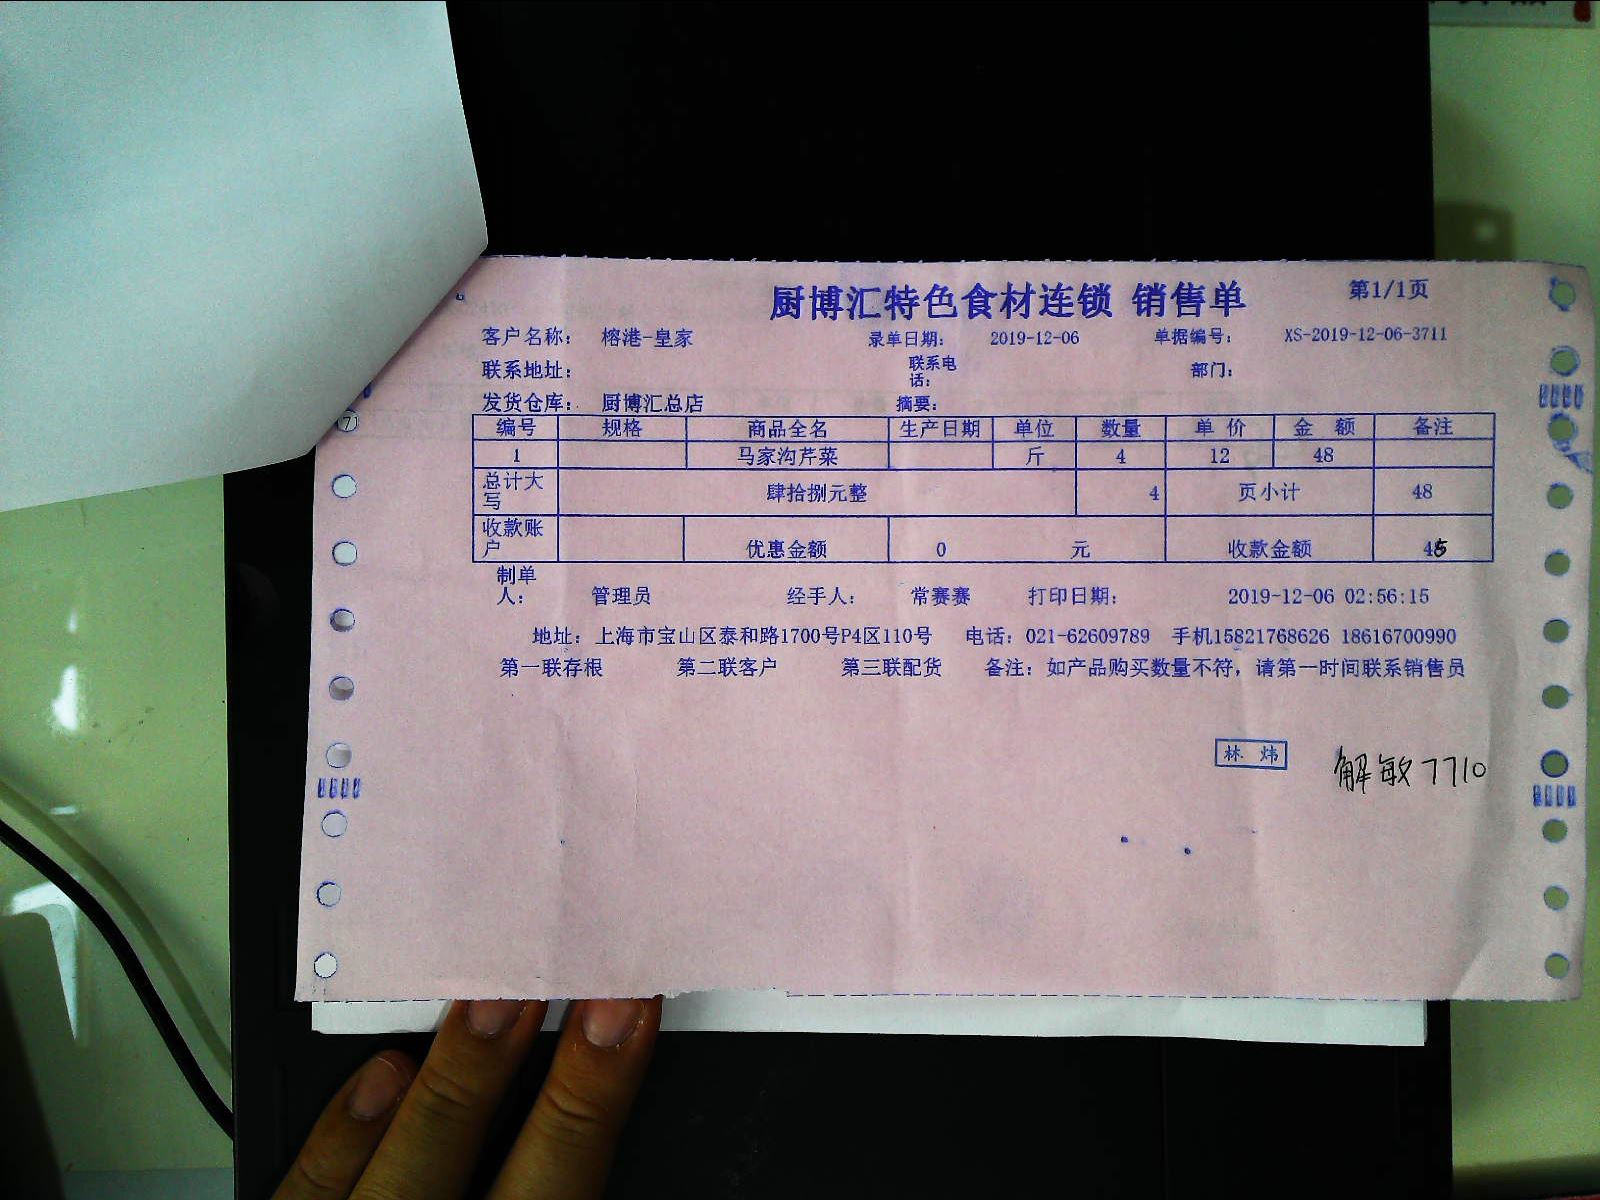 厨博汇特色食材连锁 销售单 第1/1页
客户名称： 榕港-皇家 录单日期： 2019-12-06 单据编号： XS-2019-12-06-3711
联系地址： 联系电话： 部门：
发货仓库： 厨博汇总店 摘要：
编号 规格 商品全名 生产日期 单位 数量 单 价 金 额 备注
1 马家沟芹菜 斤 4 12 48
总计大写 肆拾捌元整 4 页小计 48
收款账户 优惠金额 0 元 收款金额
制单人： 管理员 经手人： 常赛赛 打印日期： 2019-12-06 02:56:15
地址：上海市宝山区泰和路1700号P4区110号 电话：021-62609789 手机15821768626 18616700990
第一联存根 第二联客户 第三联配货 备注：如产品购买数量不符，请第一时间联系销售员
林 炜
解敏7710